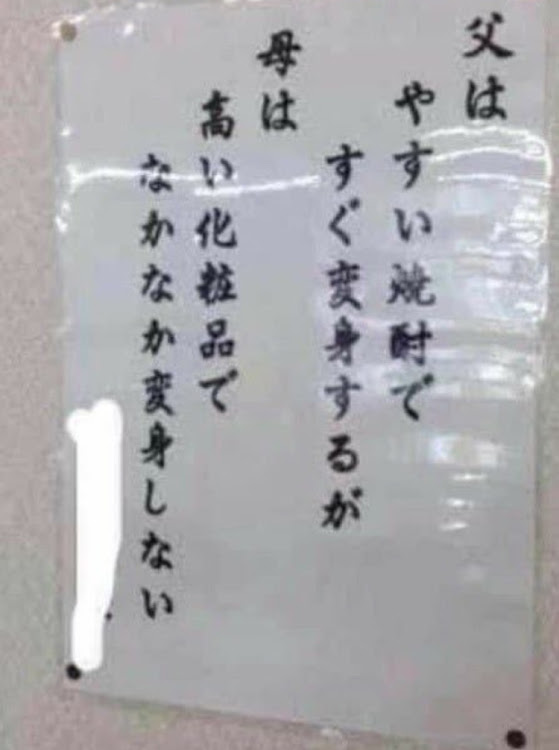 父は
やすい焼酎で
すぐ変身するが
母は
高い化粧品で
なかなか変身しない